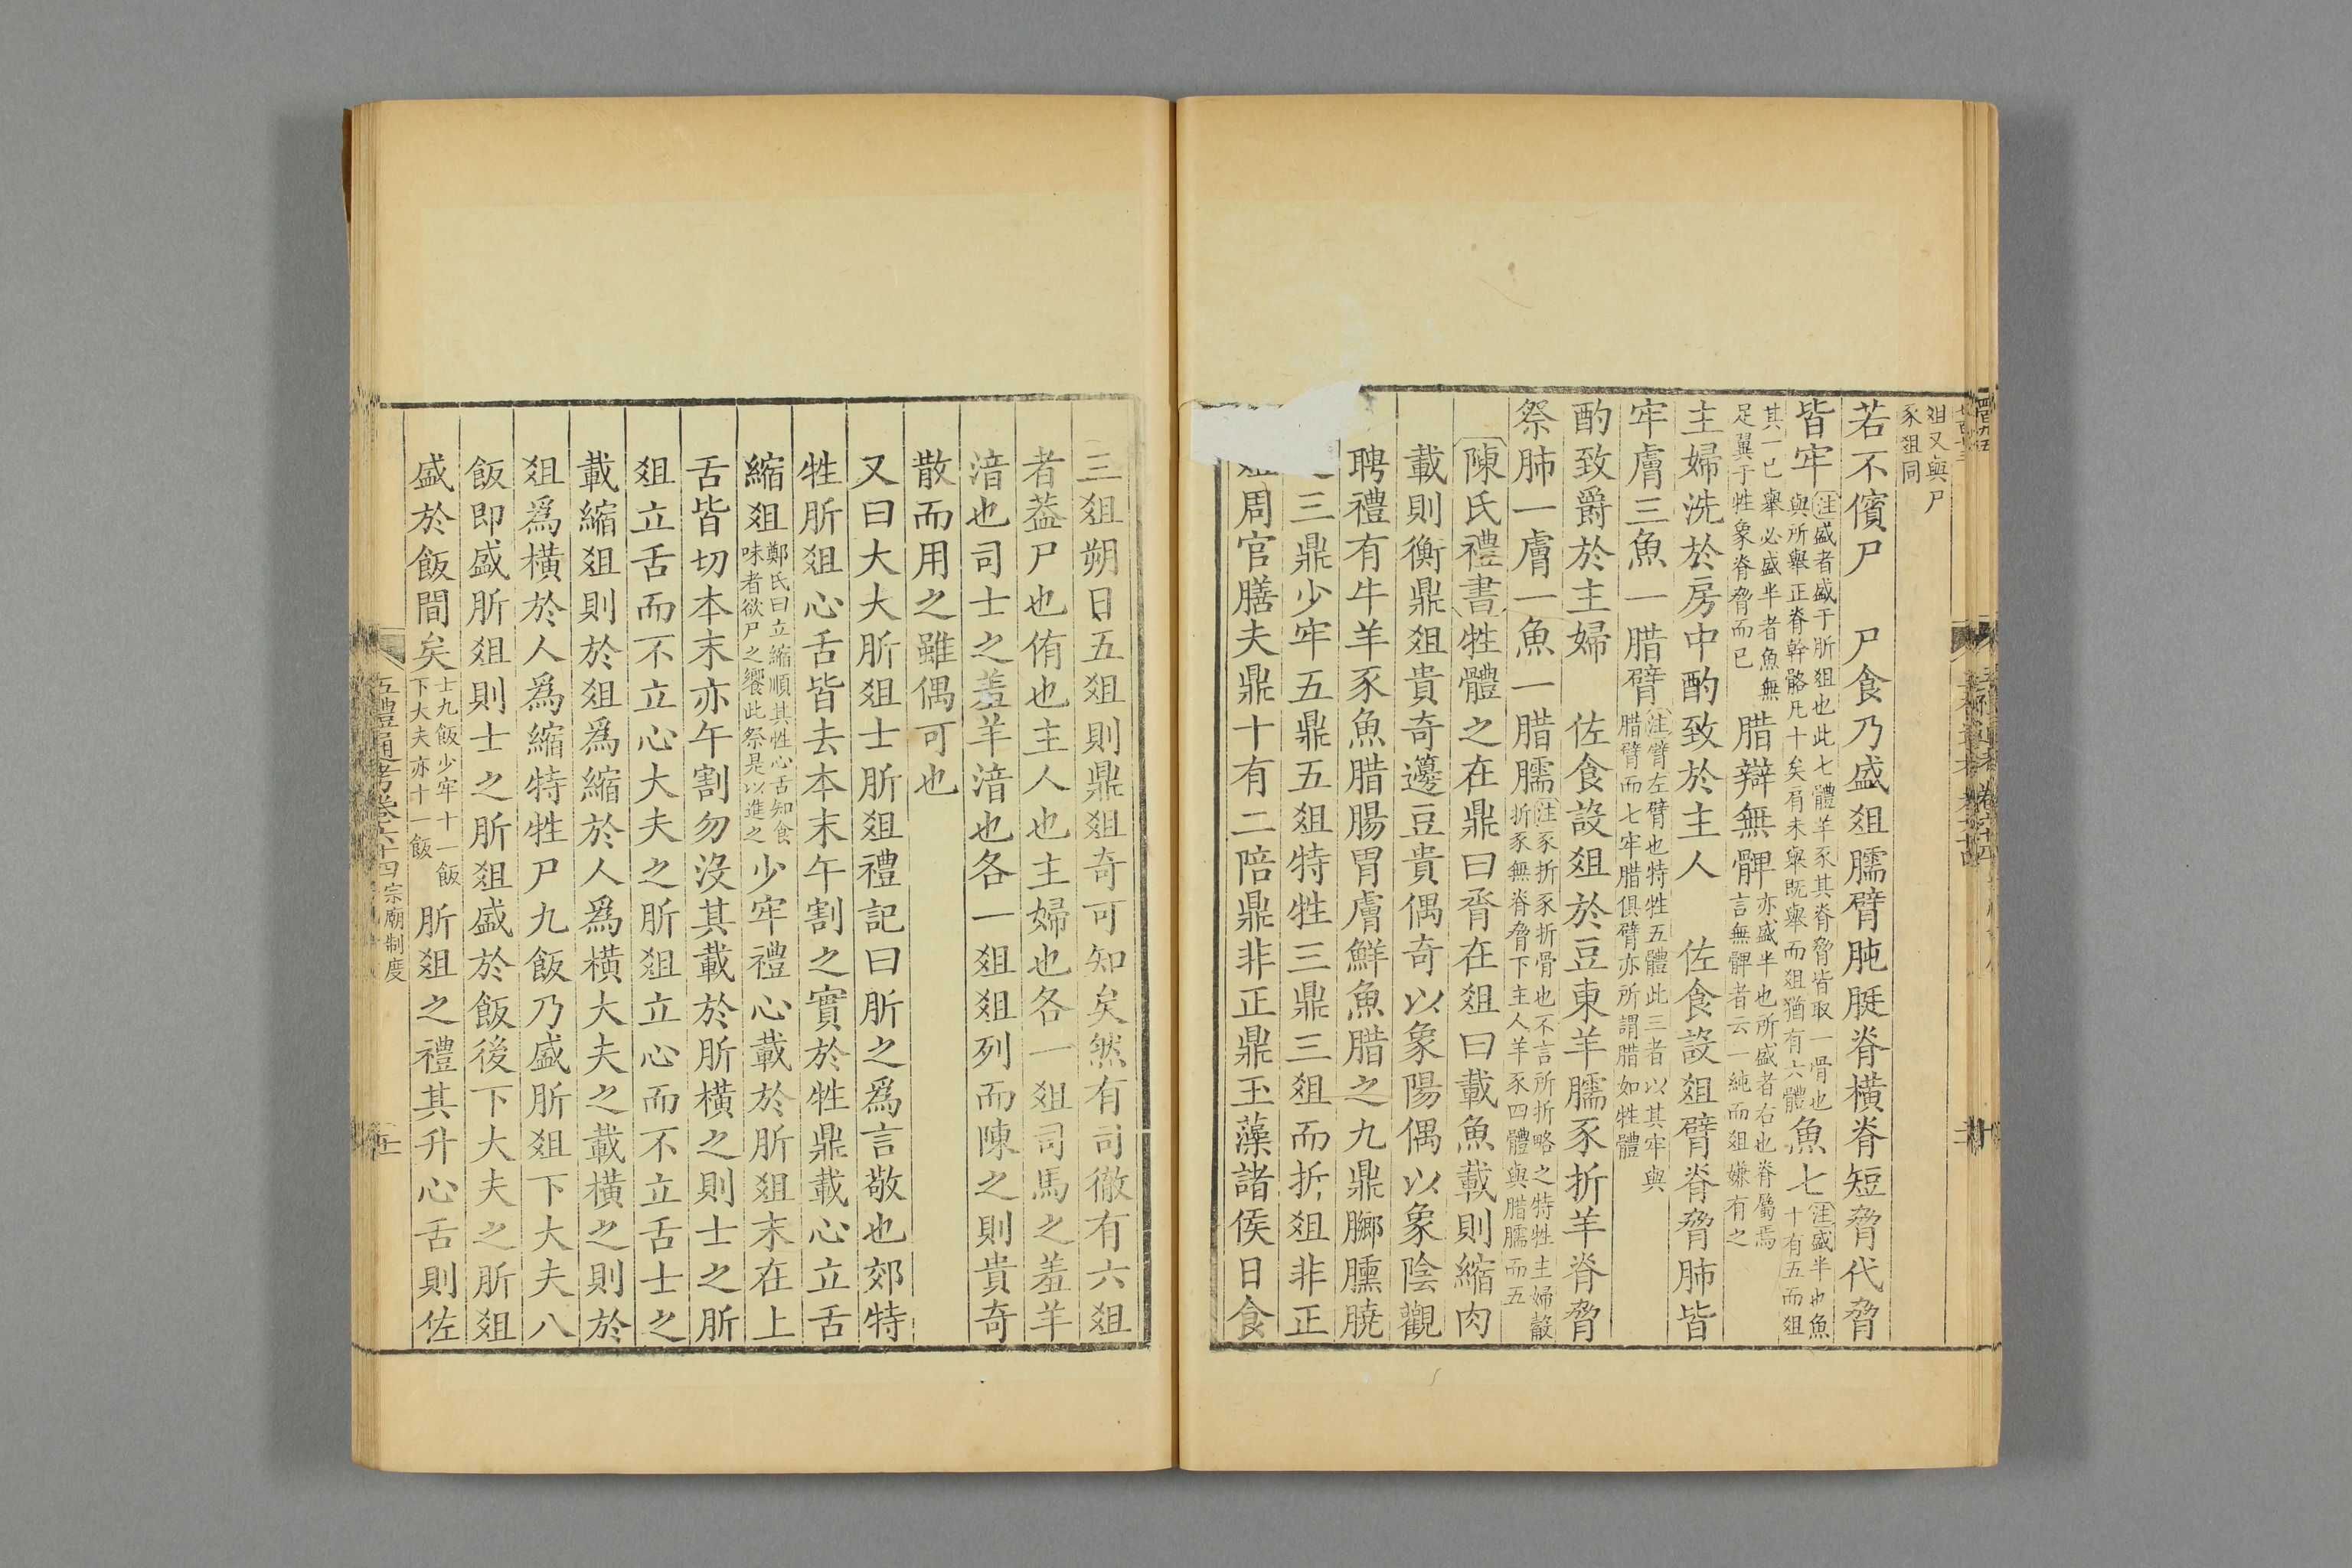 俎又與尸
豕俎同
若不儐尸　尸食乃盛俎臑臂肫脡脊橫脊短脅代脅
皆牢注盛者盛于肵俎也此七體羊豕其脊脅皆取一骨也與所舉正脊幹骼凡十矣肩未舉既舉而俎猶有六體魚七注盛半也魚十有五而俎
其一已舉必盛半者魚無足翼于牲象脊脅而已腊辯無髀亦盛半也所盛者右也脊屬焉言無髀者云一純而俎嫌有之
主婦洗於房中酌致於主人　佐食設俎臂脊脅肺皆
牢膚三魚一腊臂注臂左臂也特牲五體此三者以其牢與腊臂而七牢腊俱臂亦所謂腊如牲體
酌致爵於主婦　佐食設俎於豆東羊臑豕折羊脊脅
祭肺一膚一魚一腊臑注豕折豕折骨也不言所折略之特牲主婦觳折豕無脊脅下主人羊豕四體與腊臑而五
陳氏禮書牲體之在鼎曰脀在俎曰載魚載則縮肉
載則衡鼎俎貴奇籩豆貴偶奇以象陽偶以象陰觀
聘禮有牛羊豕魚腊腸胃膚鮮魚腊之九鼎膷臐膮
三鼎少牢五鼎五俎特牲三鼎三俎而折俎非正
俎周官膳夫鼎十有二陪鼎非正鼎玉藻諸侯日食
三俎朔日五俎則鼎俎奇可知矣然有司徹有六俎
者蓋尸也侑也主人也主婦也各一俎司馬之羞羊
湆也司士之羞羊湆也各一俎俎列而陳之則貴奇
散而用之雖偶可也
又曰大夫肵俎士肵俎禮記曰肵之爲言敬也郊特
牲肵俎心舌皆去本末午割之實於牲鼎載心立舌
縮俎鄭氏曰立縮順其牲心舌知食味者欲尸之饗此祭是以進之少牢禮心載於肵俎末在上
舌皆切本末亦午割勿沒其載於肵橫之則士之肵
俎立舌而不立心大夫之肵俎立心而不立舌士之
載縮俎則於俎爲縮於人爲橫大夫之載橫之則於
俎爲橫於人爲縮特牲尸九飯乃盛肵俎下大夫八
飯即盛肵俎則士之肵俎盛於飯後下大夫之肵俎
盛於飯間矣士九飯少牢十一飯下大夫亦十一飯肵俎之禮其升心舌則佐
五禮通考卷六十四宗廟制度